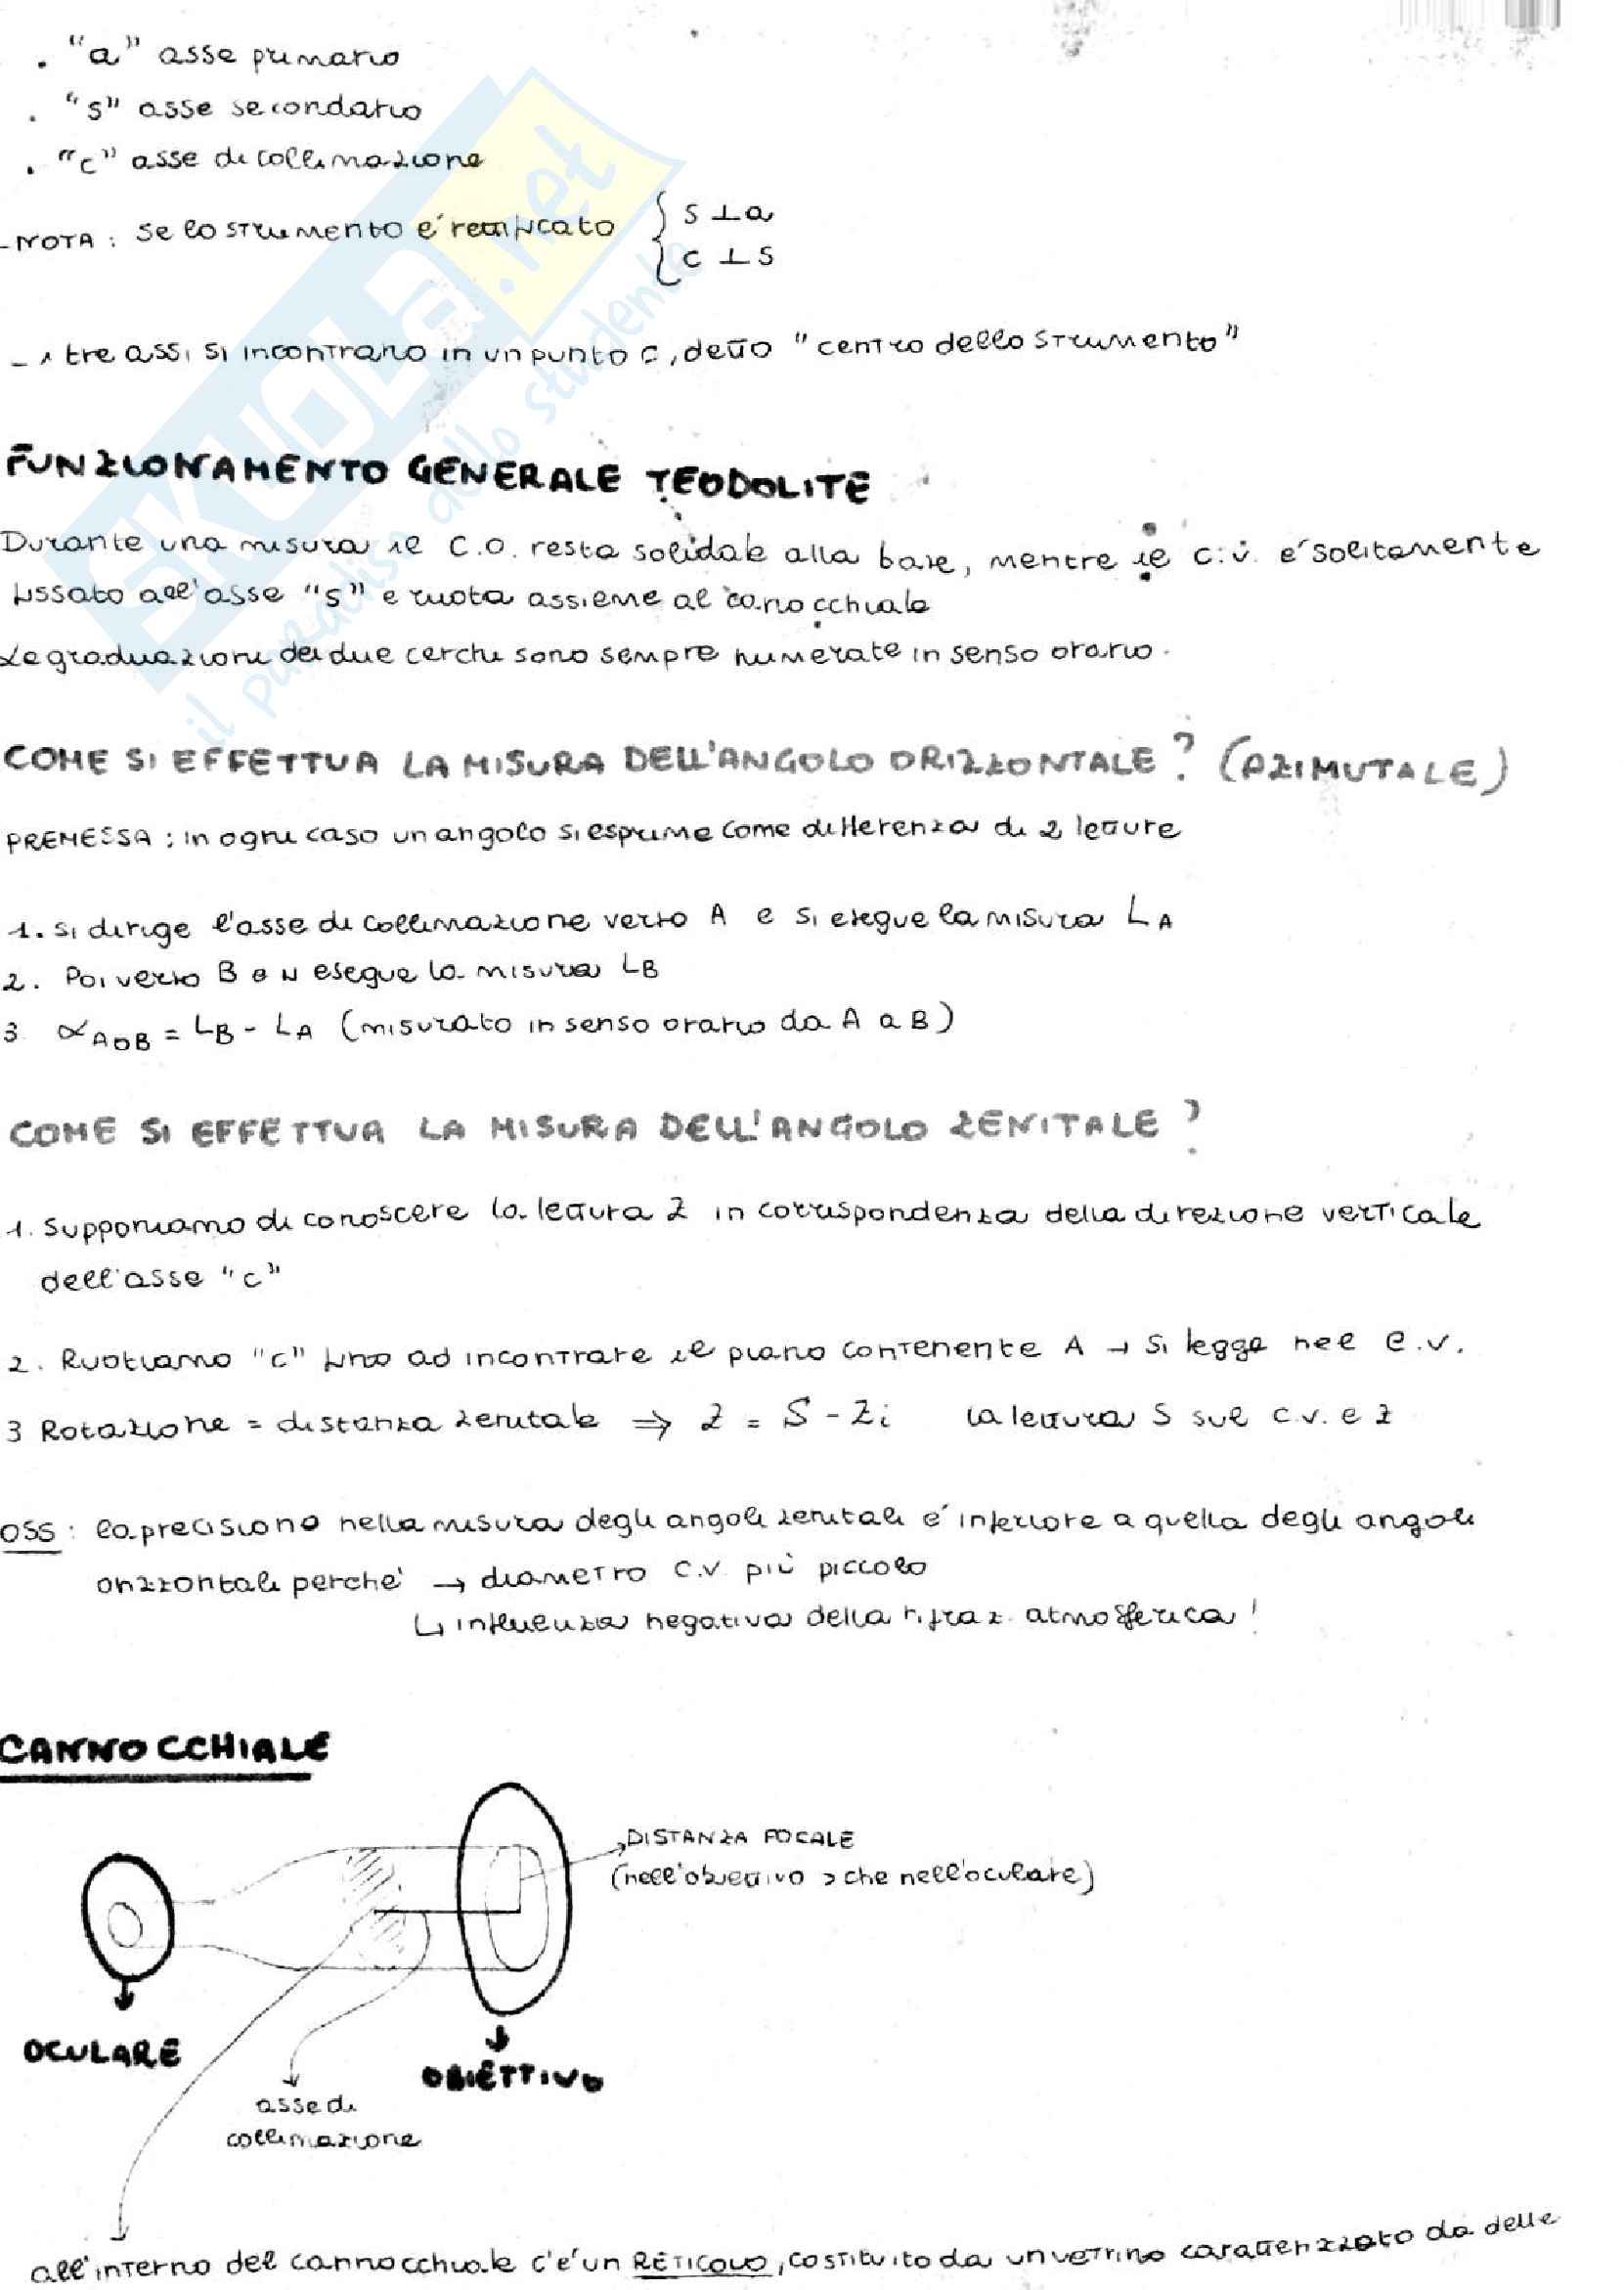 . "a" asse primario
. "s" asse secondario
. "c" asse di collimazione
- NOTA : se lo strumento é rettificato { s ⊥ a
{ c ⊥ s
- i tre assi si incontrano in un punto C, detto "centro dello strumento"
FUNZIONAMENTO GENERALE TEODOLITE
Durante una misura il C.O. resta solidale alla base, mentre il c.v. é solitamente
fissato all'asse "s" e ruota assieme al canocchiale
Le graduazioni dei due cerchi sono sempre numerate in senso orario.
COME SI EFFETTUA LA MISURA DELL'ANGOLO ORIZZONTALE? (AZIMUTALE)
PREMESSA : in ogni caso un angolo si esprime come differenza di 2 letture
1. Si dirige l'asse di collimazione verso A e si esegue la misura LA
2. Poi verso B e si esegue la misura LB
3 αAOB = LB - LA (misurato in senso orario da A a B)
COME SI EFFETTUA LA MISURA DELL'ANGOLO ZENITALE?
1. Supponiamo di conoscere la lettura Z in corrispondenza della direzione verticale
dell'asse "c"
2. Ruotiamo "c" fino ad incontrare il piano contenente A → si legge nel C.V.
3 Rotazione = distanza zenitale ⇒ Z = S - Zi la lettura S sul c.v. e z
OSS : la precisione nella misura degli angoli zenitali é inferiore a quella degli angoli
orizzontali perché → diametro C.V. più piccolo
↳ influenza negativa della rifraz. atmosferica!
CANNOCCHIALE
DISTANZA FOCALE
(nell'obiettivo > che nell'oculare)
OCULARE
OBIETTIVO
asse di
collimazione
all'interno del cannocchiale c'é un RETICOLO, costituito da un vetrino caratterizzato da delle
SKUOLA.net
il paradiso dello studente